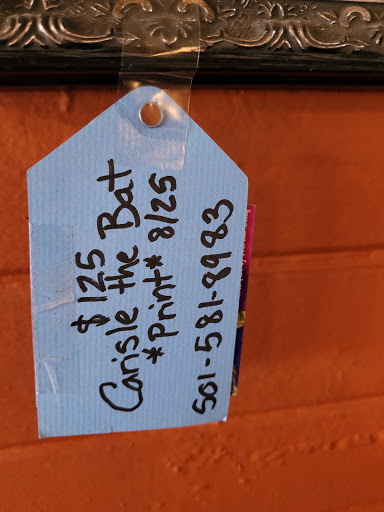 $125
Carisle the Bat
*Print* 8/25
501-581-8983